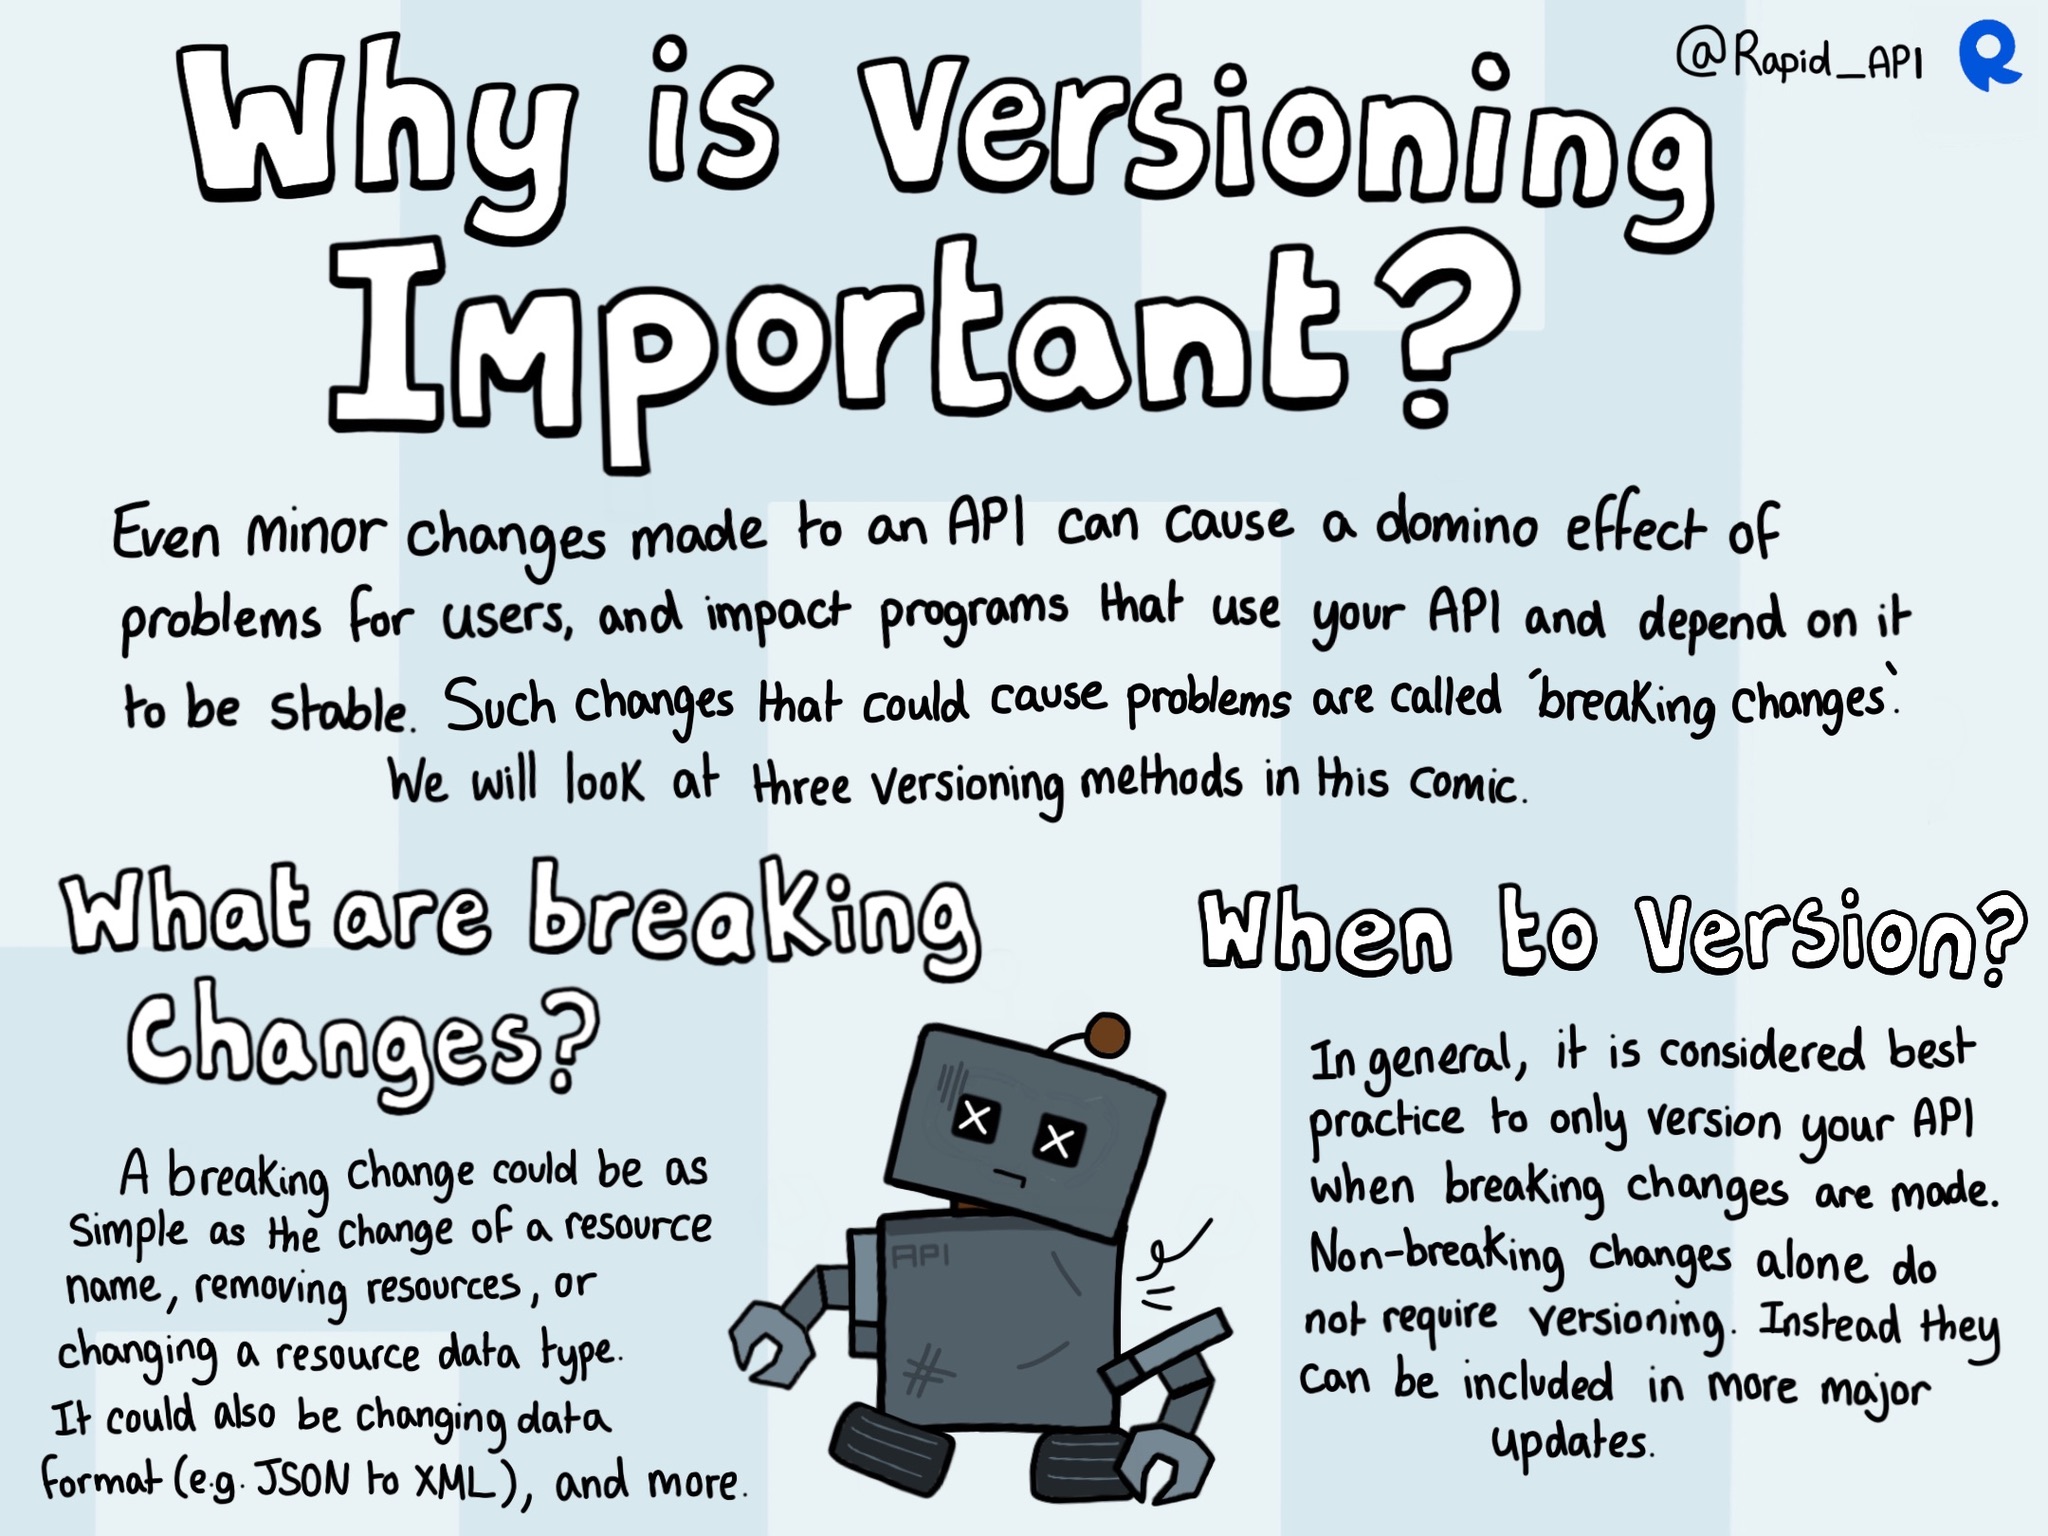 @Rapid_API
Why is Versioning
Important?
Even minor changes made to an API can cause a domino effect of
problems for users, and impact programs that use your API and depend on it
to be stable. Such changes that could cause problems are called 'breaking changes'.
We will look at three versioning methods in this comic.
What are breaking
Changes?
A breaking change could be as
simple as the change of a resource
name, removing resources, or
changing a resource data type.
It could also be changing data
format (e.g. JSON to XML), and more.
API
When to Version?
In general, it is considered best
practice to only version your API
when breaking changes are made.
Non-breaking changes alone do
not require versioning. Instead they
can be included in more major
updates.